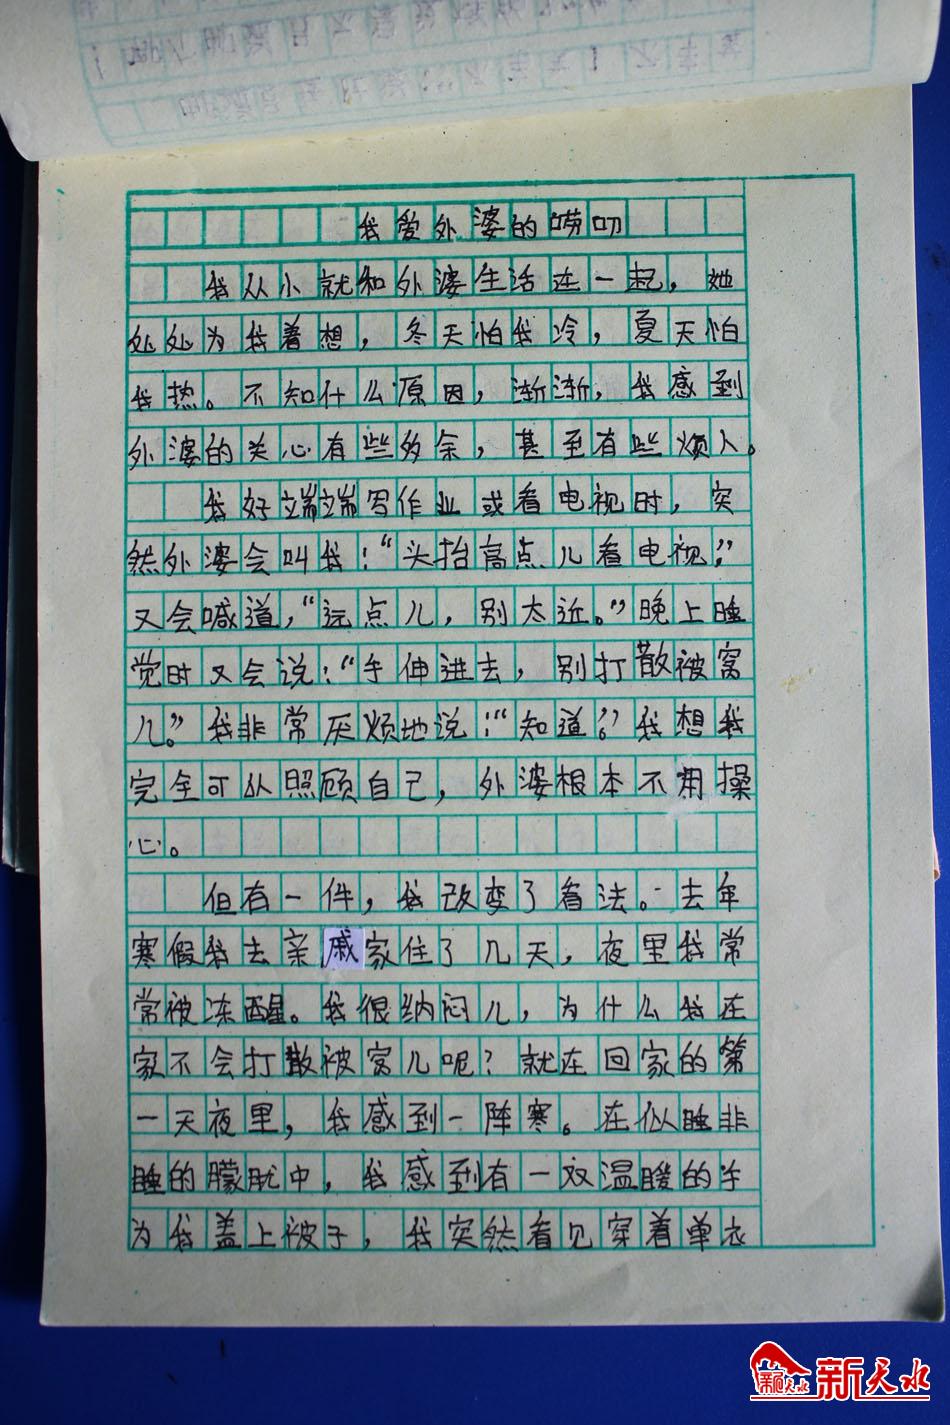 我爱外婆的唠叨
我从小就和外婆生活在一起，她
处处为我着想，冬天怕我冷，夏天怕
我热。不知什么原因，渐渐，我感到
外婆的关心有些多余，甚至有些烦人。
我好端端写作业或看电视时，突
然外婆会叫我：“头抬高点儿看电视”，
又会喊道，“远点儿，别太近。”晚上睡
觉时又会说：“手伸进去，别打散被窝
儿。”我非常厌烦地说：“知道”。我想我
完全可以照顾自己，外婆根本不用操
心。
但有一件，我改变了看法。去年
寒假我去亲戚家住了几天，夜里我常
常被冻醒。我很纳闷儿，为什么我在
家不会打散被窝儿呢？就在回家的第
一天夜里，我感到一阵寒。在似睡非
睡的朦胧中，我感到有一双温暖的手
为我盖上被子，我突然看见穿着单衣
新天水